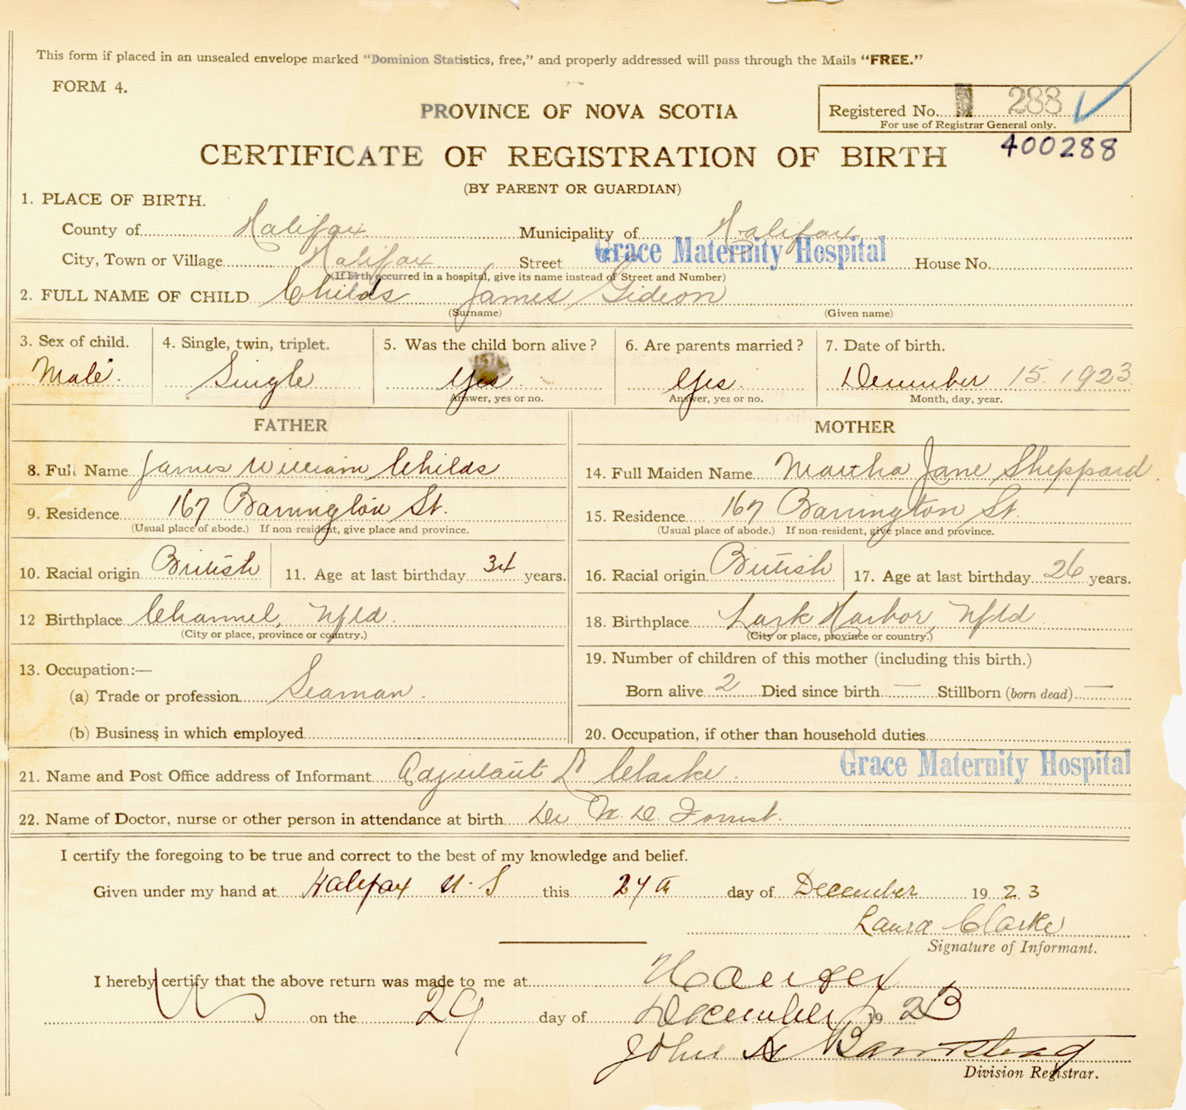 This form if placed in an unsealed envelope marked "Dominion Statistics, free," and properly addressed will pass through the Mails "FREE."
FORM 4.
PROVINCE OF NOVA SCOTIA
Registered No. 288
For use of Registrar General only.
400288
CERTIFICATE OF REGISTRATION OF BIRTH
(BY PARENT OR GUARDIAN)
1. PLACE OF BIRTH.
County of Halifax Municipality of Halifax
City, Town or Village Halifax Street Grace Maternity Hospital House No.
(If birth occurred in a hospital, give its name instead of Street and Number)
2. FULL NAME OF CHILD Childs James Gideon
(Surname) (Given name)
3. Sex of child. 4. Single, twin, triplet. 5. Was the child born alive? 6. Are parents married? 7. Date of birth.
Male. Single Yes. Yes. December 15. 1923
Answer, yes or no. Answer, yes or no. Month, day, year.
FATHER MOTHER
8. Full Name James William Childs 14. Full Maiden Name Martha Jane Sheppard.
9. Residence 167 Barrington St. 15. Residence 167 Barrington St.
(Usual place of abode.) If non resident, give place and province. (Usual place of abode.) If non-resident, give place and province.
10. Racial origin British 11. Age at last birthday 34 years. 16. Racial origin British 17. Age at last birthday 26 years.
12 Birthplace Channel, Nfld. 18. Birthplace Lark Harbor, Nfld
(City or place, province or country.) (City or place, province or country.)
13. Occupation:— 19. Number of children of this mother (including this birth.)
(a) Trade or profession Seaman. Born alive 2 Died since birth — Stillborn (born dead) —
(b) Business in which employed 20. Occupation, if other than household duties
21. Name and Post Office address of Informant Adjutant L Clarke. Grace Maternity Hospital
22. Name of Doctor, nurse or other person in attendance at birth Dr W. D. Forrest.
I certify the foregoing to be true and correct to the best of my knowledge and belief.
Given under my hand at Halifax N. S this 27th day of December 1923
Laura Clarke
Signature of Informant.
I hereby certify that the above return was made to me at Halifax
on the 29 day of December 1923
John H Barnstead
Division Registrar.